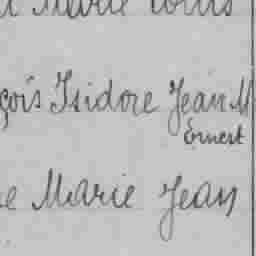 Marie Louis
çois Isidore Jean M
Ernest
e Marie Jean